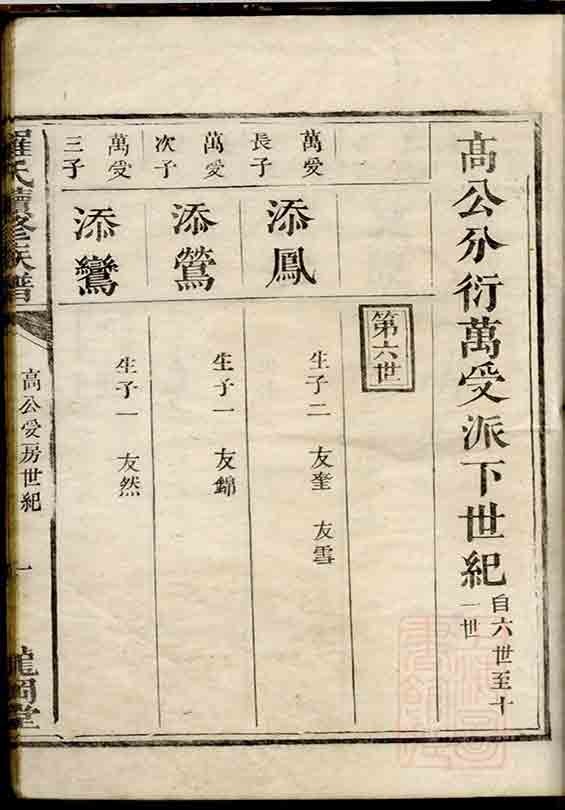 高公分衍萬受派下世紀 自六世至十一世
第六世
萬受長子 添鳳 生子二 友奎 友雪
萬受次子 添鶯 生子一 友錦
萬受三子 添鸞 生子一 友然
羅氏續修族譜
高公受房世紀
一